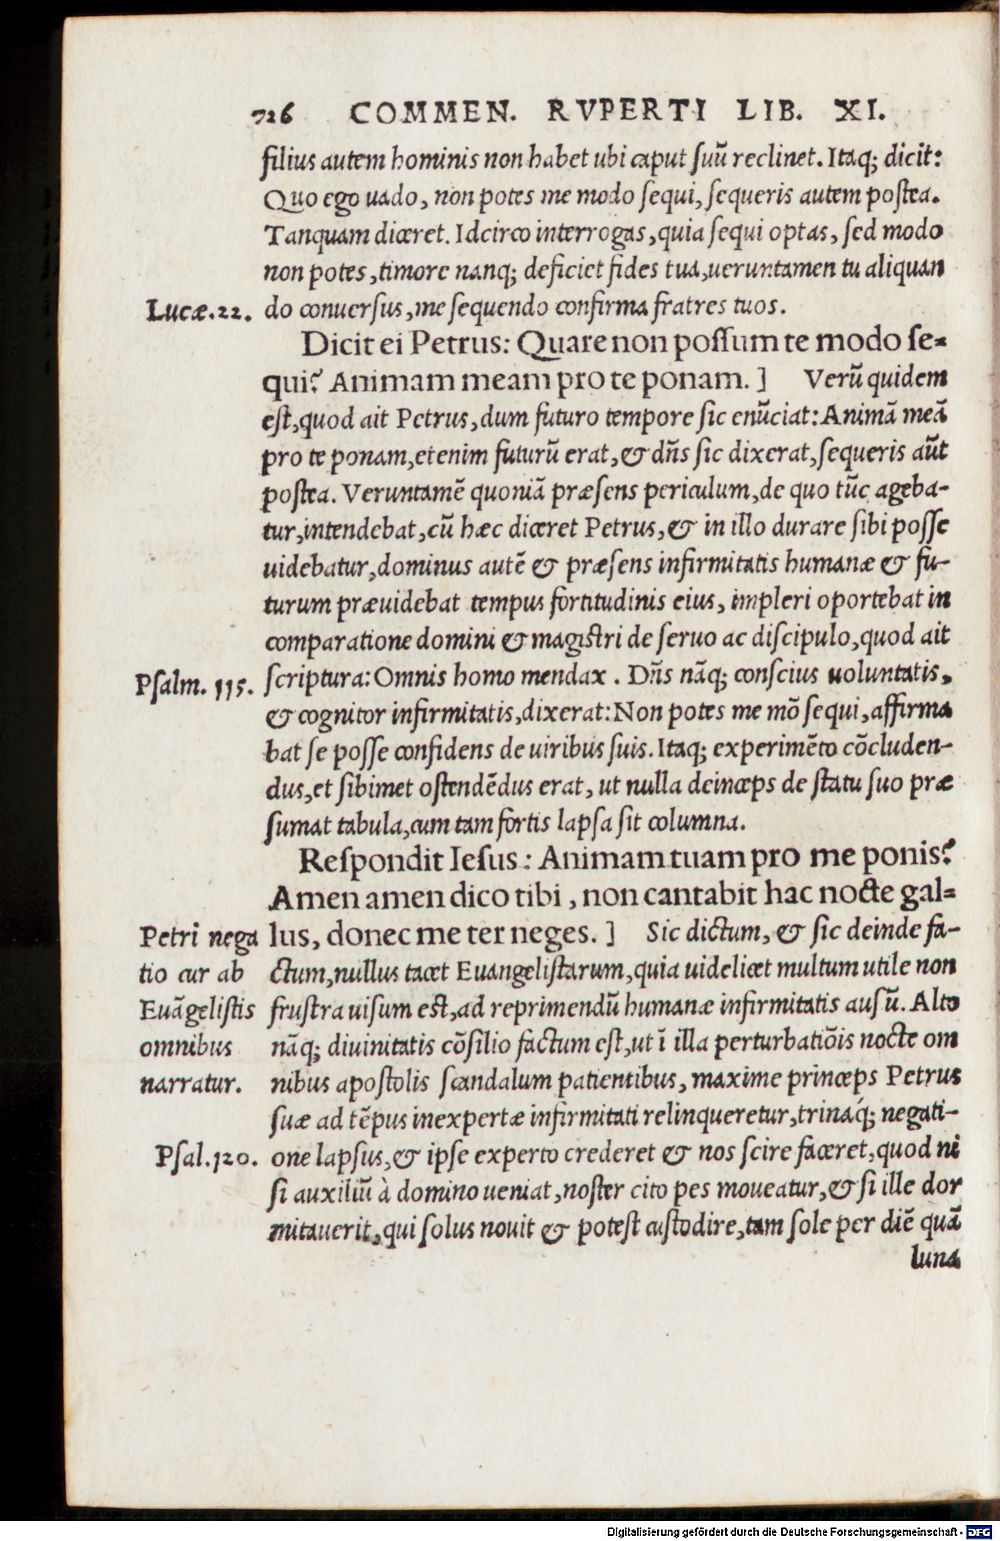 726 COMMEN. RVPERTI LIB. XI.
filius autem hominis non habet ubi caput ſuũ reclinet. Itaq; dicit:
Quo ego uado, non potes me modo ſequi, ſequeris autem poſtea.
Tanquam diceret. Idcirco interrogas, quia ſequi optas, ſed modo
non potes, timore nanq; deficiet fides tua, ueruntamen tu aliquan
Lucæ.22. do conuerſus, me ſequendo confirma fratres tuos.
Dicit ei Petrus: Quare non poſſum te modo ſe-
qui? Animam meam pro te ponam. ] Verũ quidem
eſt, quod ait Petrus, dum futuro tempore ſic enũciat: Animã meã
pro te ponam, etenim futurũ erat, & dñs ſic dixerat, ſequeris aũt
poſtea. Veruntamẽ quoniã præſens periculum, de quo tũc ageba-
tur, intendebat, cũ hæc diceret Petrus, & in illo durare ſibi poſſe
uidebatur, dominus autẽ & præſens infirmitatis humanæ & fu-
turum præuidebat tempus fortitudinis eius, impleri oportebat in
comparatione domini & magiſtri de ſeruo ac diſcipulo, quod ait
Pſalm. 115. ſcriptura: Omnis homo mendax . Dñs nãq; conſcius uoluntatis,
& cognitor infirmitatis, dixerat: Non potes me mõ ſequi, affirma
bat ſe poſſe confidens de uiribus ſuis. Itaq; experimẽto cõcluden-
dus, et ſibimet oſtendẽdus erat, ut nulla deinceps de ſtatu ſuo præ
ſumat tabula, cum tam fortis lapſa ſit columna.
Reſpondit Ieſus: Animam tuam pro me ponis?
Amen amen dico tibi, non cantabit hac nocte gal-
Petri nega lus, donec me ter neges. ] Sic dictum, & ſic deinde fa-
tio cur ab ctum, nullus tacet Euangeliſtarum, quia uidelicet multum utile non
Euãgeliſtis fruſtra uiſum eſt, ad reprimendũ humanæ infirmitatis auſũ. Alto
omnibus nãq; diuinitatis cõſilio factum eſt, ut ĩ illa perturbatiõis nocte om
narratur. nibus apoſtolis ſcandalum patientibus, maxime princeps Petrus
ſuæ ad tẽpus inexpertæ infirmitati relinqueretur, trináq; negati-
Pſal.120. one lapſus, & ipſe experto crederet & nos ſcire faceret, quod ni
ſi auxiliũ à domino ueniat, noſter cito pes moueatur, & ſi ille dor
mitauerit, qui ſolus nouit & poteſt cuſtodire, tam ſole per diẽ quã
luna
Digitalisierung gefördert durch die Deutsche Forschungsgemeinschaft - DFG